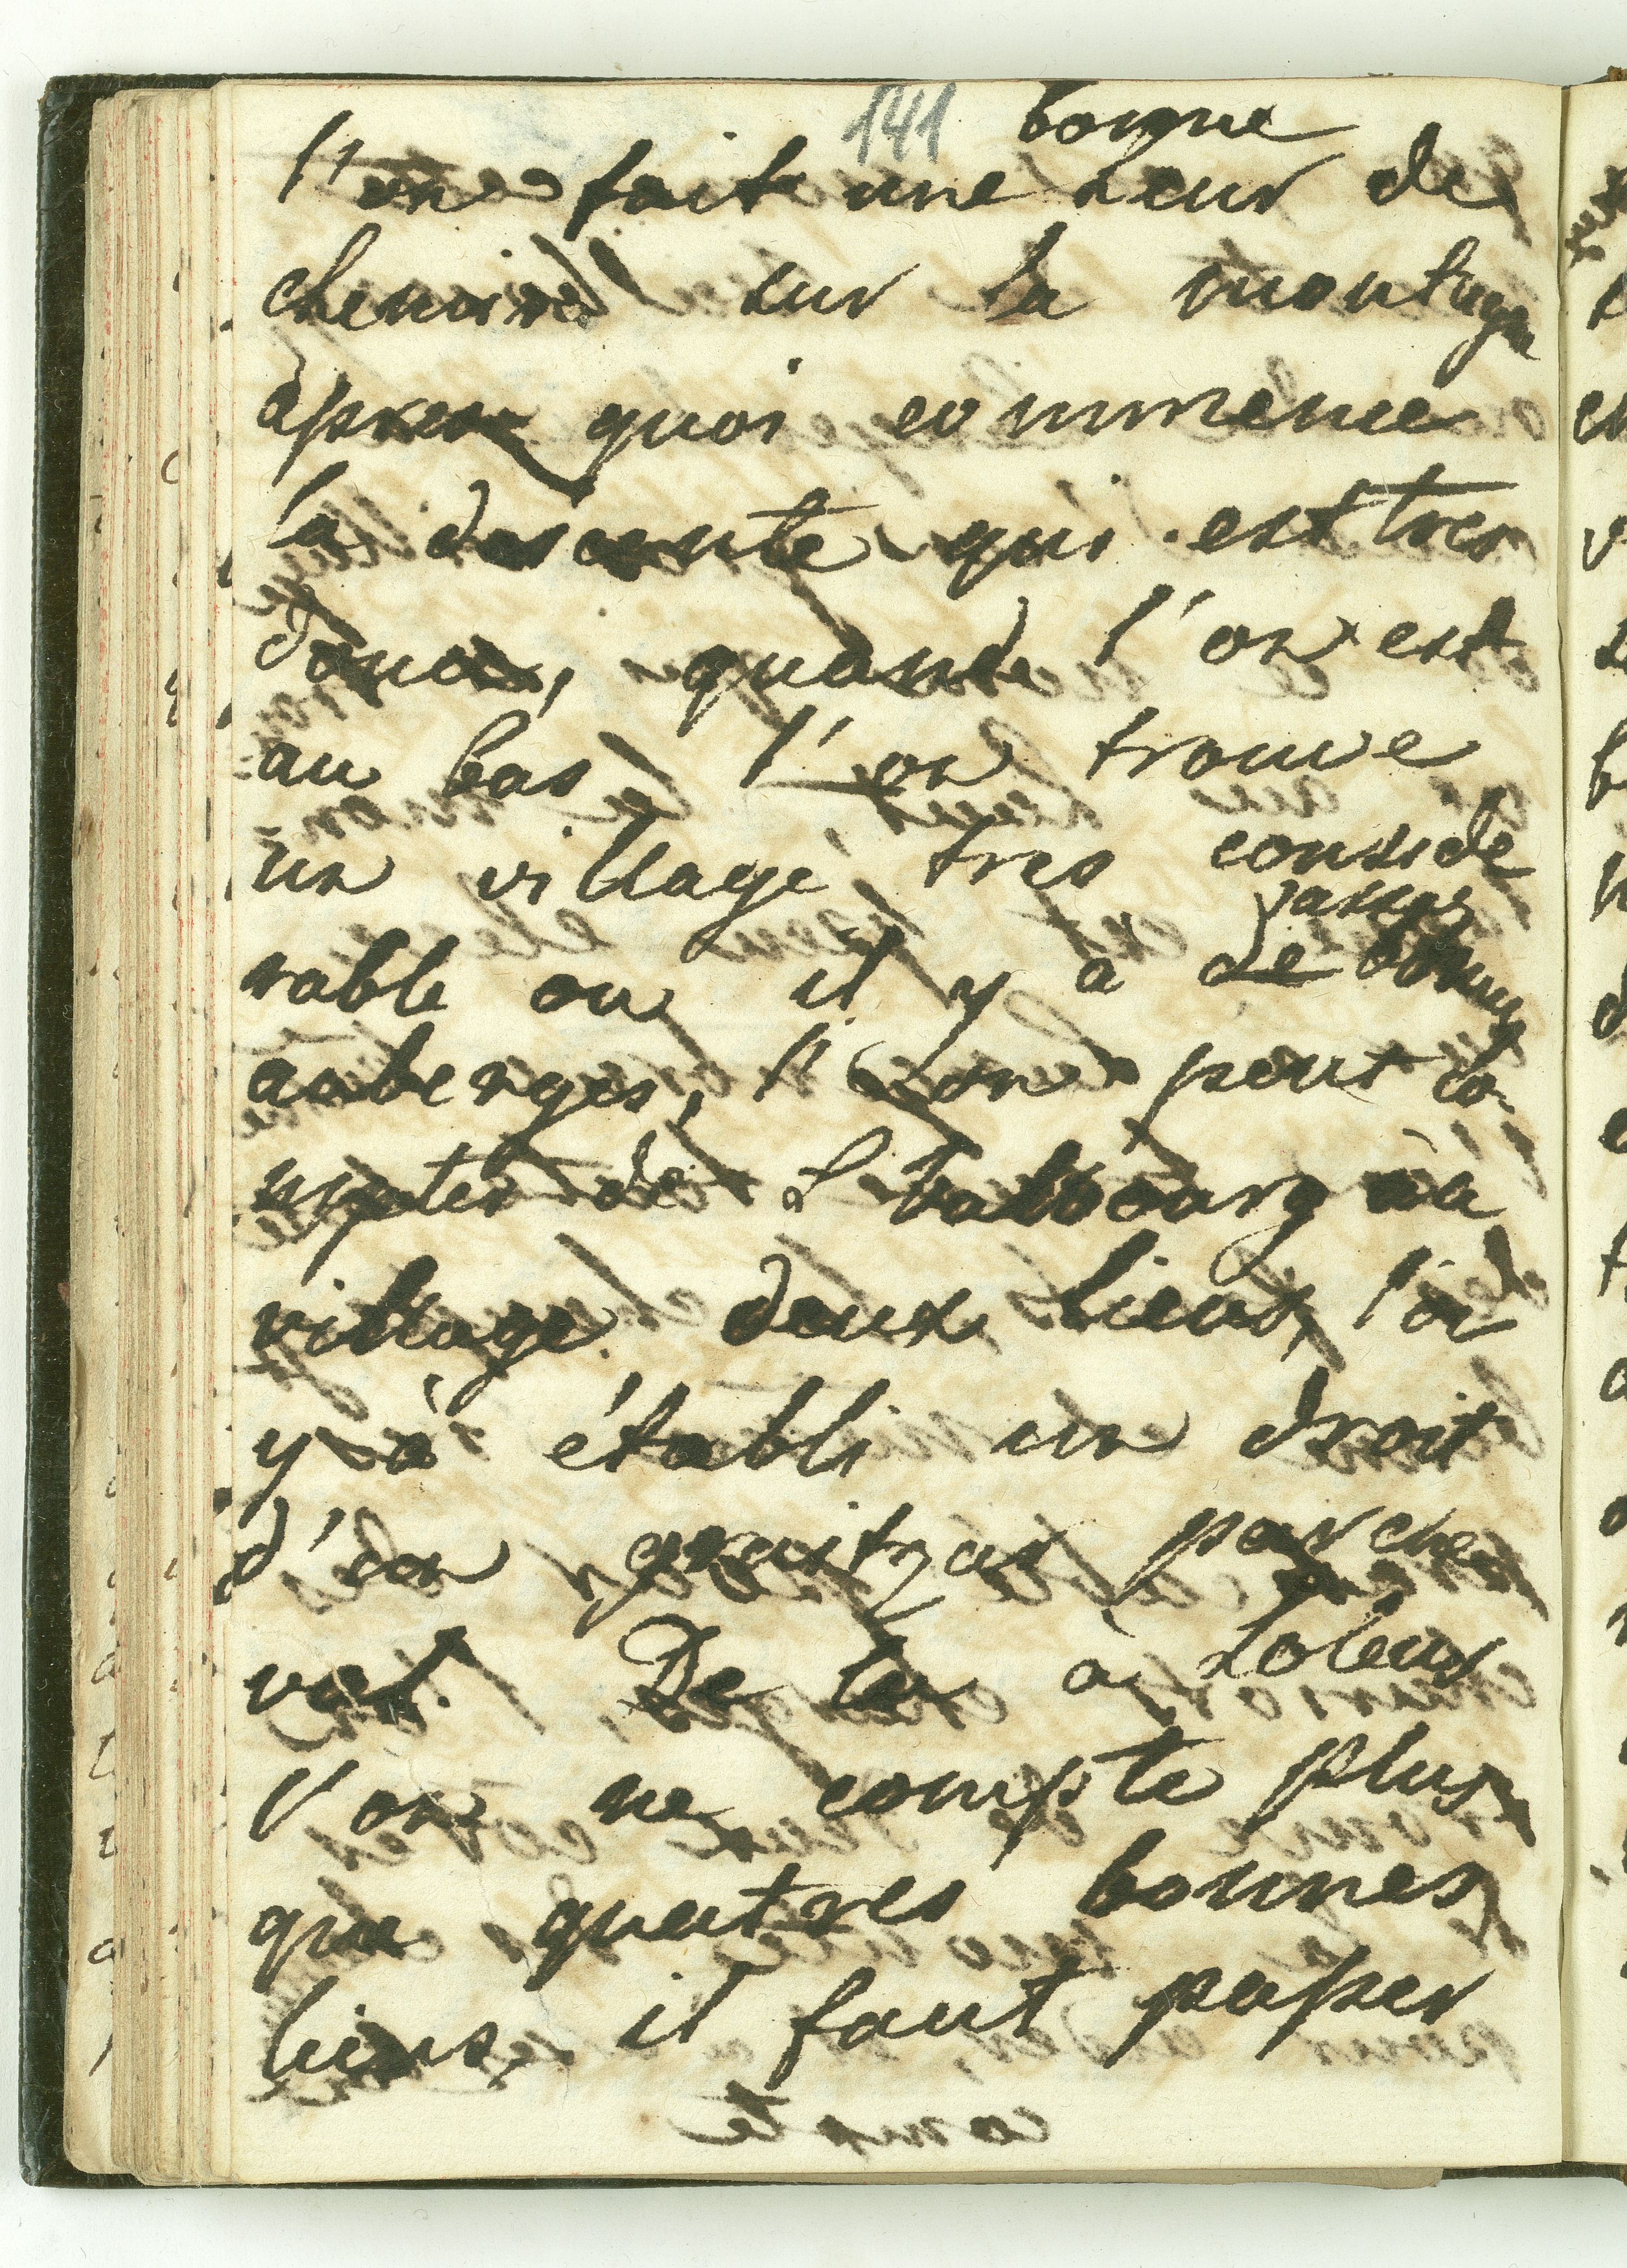 141 bonne
l'on fait une Leur de
chemind sur la montagn
apres quoi commence
la descente qui est tres
douce, quande l'on est
au bas l'on trouve
un village tres conside
rable ou il y a de bonnes
auberges, l'on peut co-
mpter de à ce
village deux lieus, l'on
y à établi un droit
d'un par che
val. De la à
l'on ne compte plus
que quatres bonnes
lieus, il faut passer